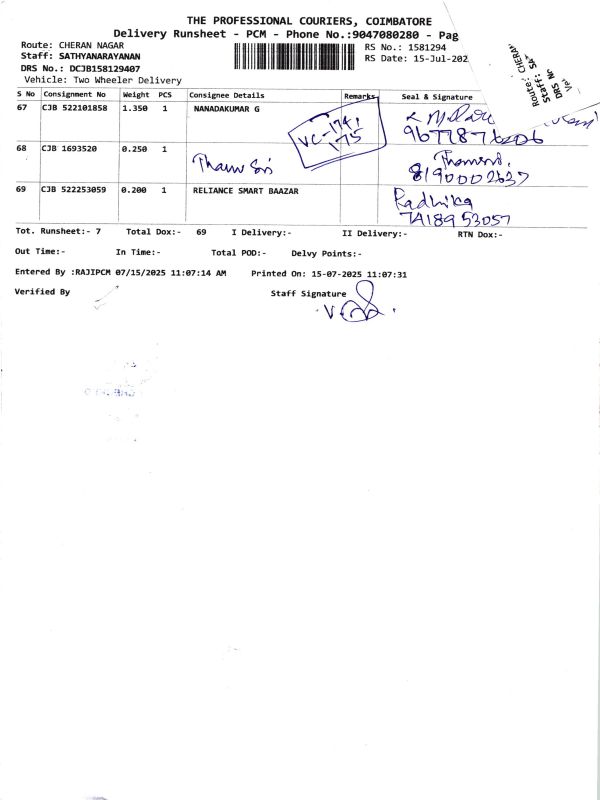 THE PROFESSIONAL COURIERS, COIMBATORE
Delivery Runsheet - PCM - Phone No.:9047080280 - Pag
Route: CHERAN NAGAR
Staff: SATHYANARAYANAN
DRS No.: DCJB158129407
Vehicle: Two Wheeler Delivery
RS No.: 1581294
RS Date: 15-Jul-202
Route: CHERAN
Staff: SA
DRS No
S No Consignment No Weight PCS Consignee Details Remarks Seal & Signature
67 CJB 522101858 1.350 1 NANADAKUMAR G
VC-174,
175
68 CJB 1693520 0.250 1
8190002637
69 CJB 522253059 0.200 1 RELIANCE SMART BAAZAR
Radhika
7418953057
Tot. Runsheet:- 7 Total Dox:- 69 I Delivery:- II Delivery:- RTN Dox:-
Out Time:- In Time:- Total POD:- Delvy Points:-
Entered By :RAJIPCM 07/15/2025 11:07:14 AM Printed On: 15-07-2025 11:07:31
Verified By Staff Signature